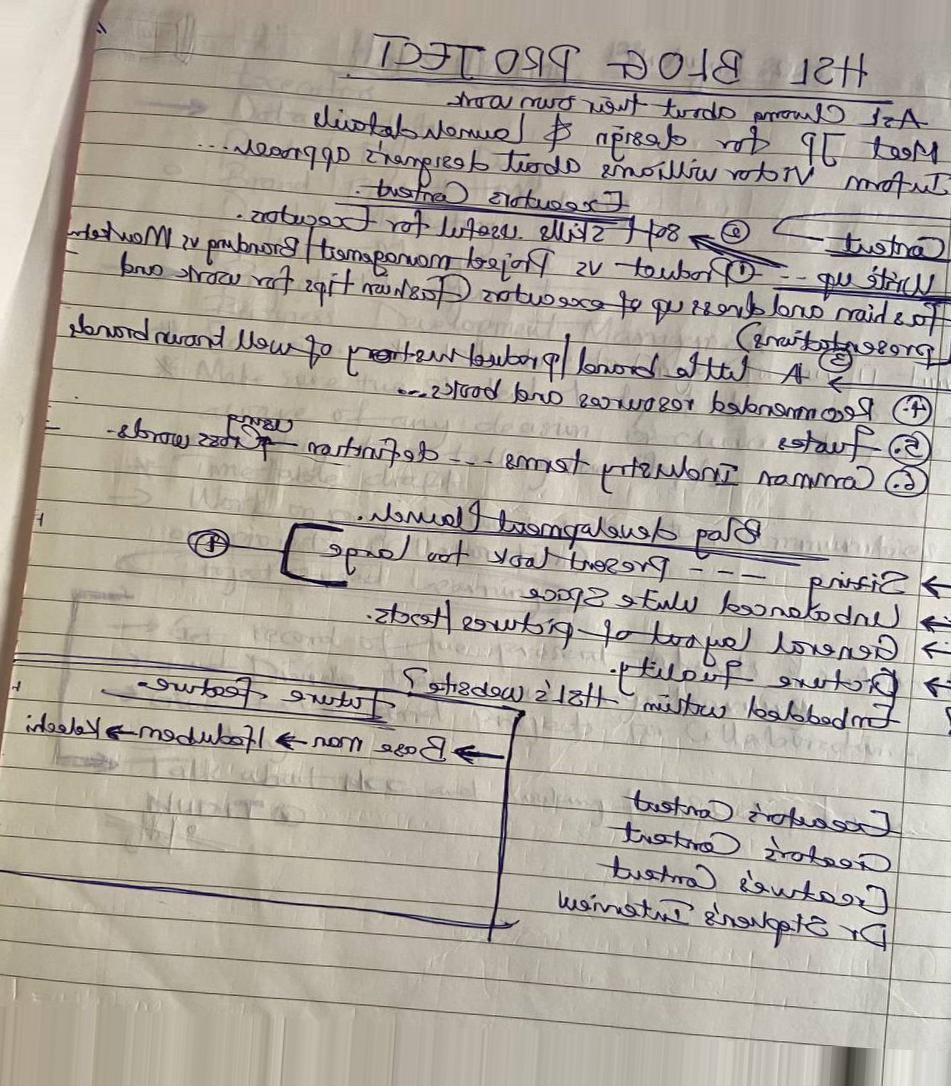 HSL BLOG PROJECT
Ask Chuoma about their own work
Meet JP for design & Laurel's details
Inform Victor Williams about designer's approach...
Executor's Content.
Content → ② soft skills useful for Executor.
Write up --- ① Product vs Project management/Branding vs Marketing
Fashion and dress up of executors (Fashion tips for work and
presentations)
③ A little board/product history of well known brands
④. Recommended resources and books...
⑤. Quotes
⑥. Common Industry terms --- definition & Cross words.
Blog development Launch.
→ Sizing --- Present look too large
→ Unbalanced White Space
→ General layout of pictures/texts.
→ Picture Quality.
→ Embedded within HSL's website?
Future Feature.
→ Rose won → Ifechukwu → Kelechi
Executor's Content
Creator's Content
Creative's Content
Dr Stephen's Interview